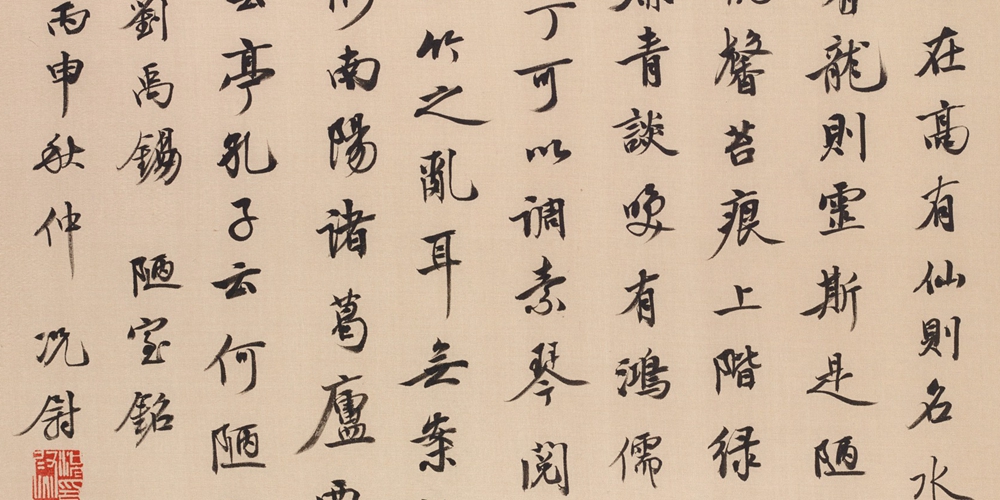 在高有仙則名水
龍則靈斯是陋
馨苔痕上階緑
青談咲有鴻儒
丁可以调素琴閱
竹之亂耳無案
南陽諸葛廬西
云亭孔子云何陋
劉禹錫 陋室銘
丙申秋仲 况尉